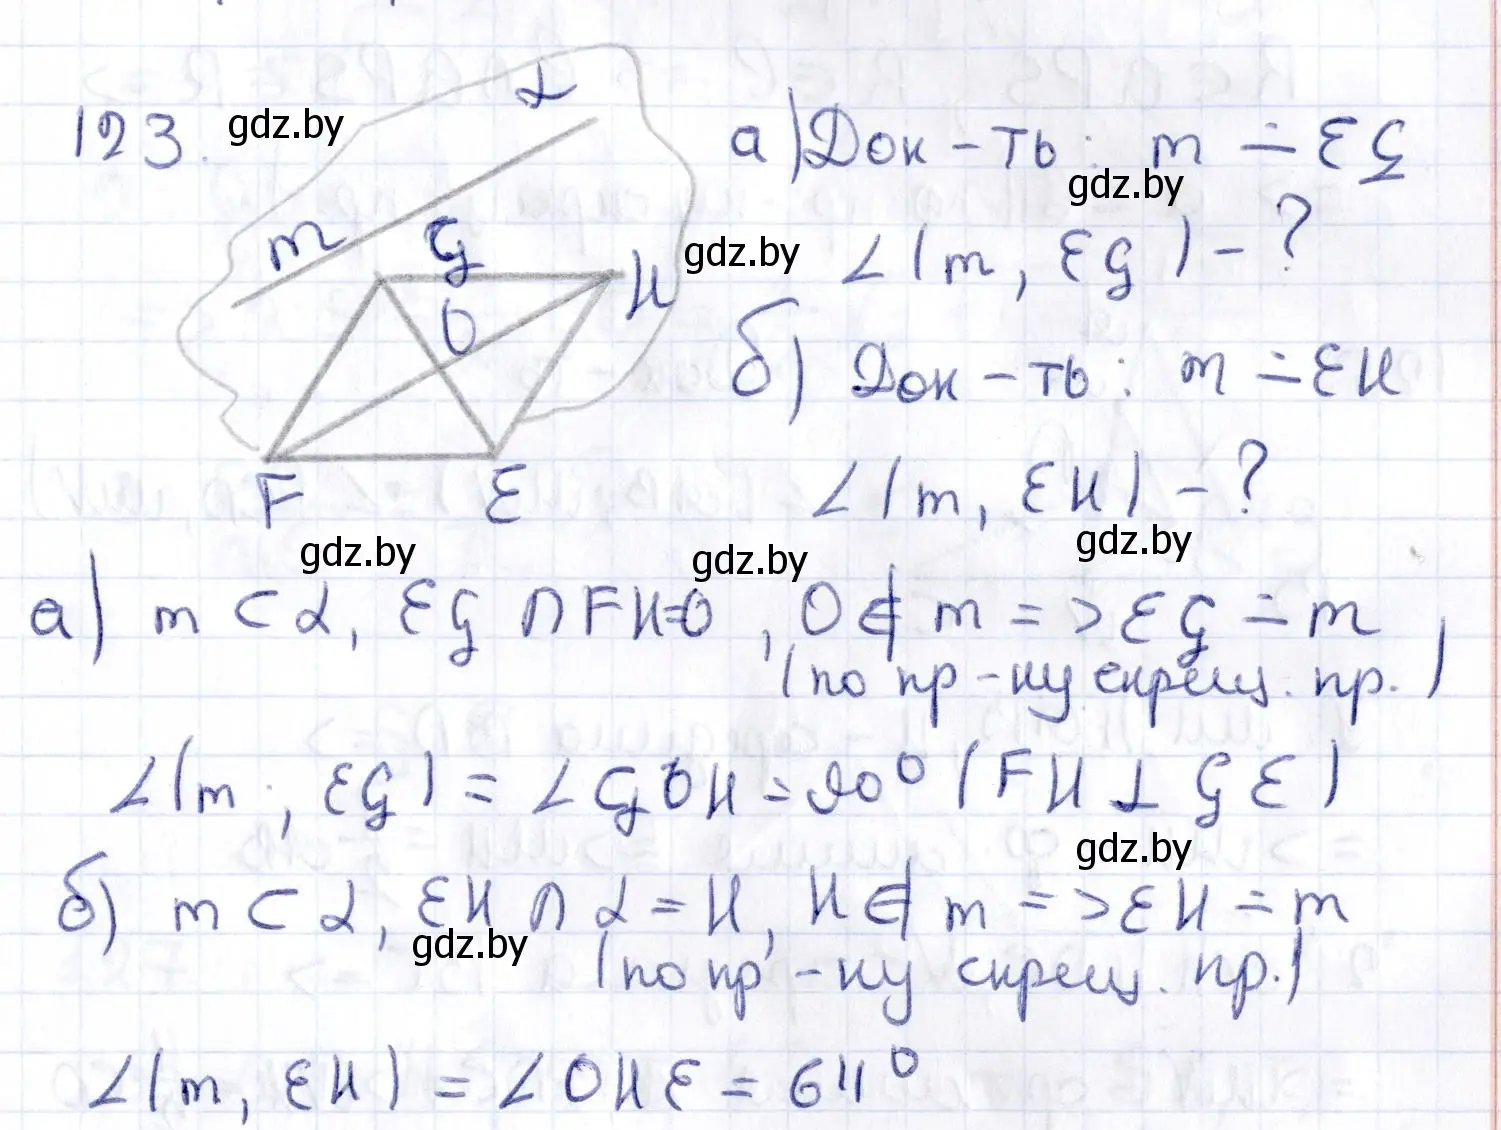 123.
gdz.by
α
m
G
O
H
F
E
а) Док-ть: m ∸ EG
gdz.by
gdz.by
∠(m, EG) - ?
б) Док-ть: m ∸ EH
∠(m, EH) - ?
gdz.by
gdz.by
gdz.by
а) m ⊂ α, EG ∩ FH=O, O ∉ m => EG ∸ m,
(по пр-ку скрещ. пр.)
∠(m; EG) = ∠GOH = 90° (FH ⊥ GE)
gdz.by
б) m ⊂ α, EH ∩ α = H, H ∉ m => EH ∸ m
gdz.by
(по пр-ку скрещ. пр.)
∠(m, EH) = ∠OHE = 64°